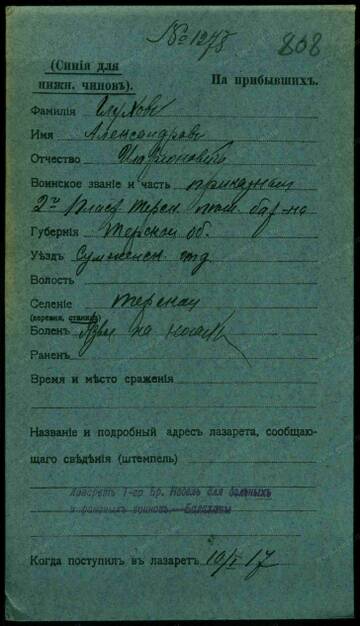 № 1278
808
(Синія для
нижн. чиновъ).
На прибывшихъ.
Фамилія
Имя Александровъ
Отчество Иларіоновичъ
Воинское званіе и часть приказный
2й Пласт. Терск. бат-на
Губернія Терской об.
Уѣздъ Сунженск. отд
Волость
Селеніе Терской
(деревня, станица)
Боленъ Язвы на ногахъ
Раненъ
Время и мѣсто сраженія
Названіе и подробный адресъ лазарета, сообщаю-
щаго свѣдѣнія (штемпель)
Лазаретъ 1-го Бр. Нобель для больныхъ
и раненыхъ воиновъ Балаханы
Когда поступилъ въ лазаретъ 10/I 17